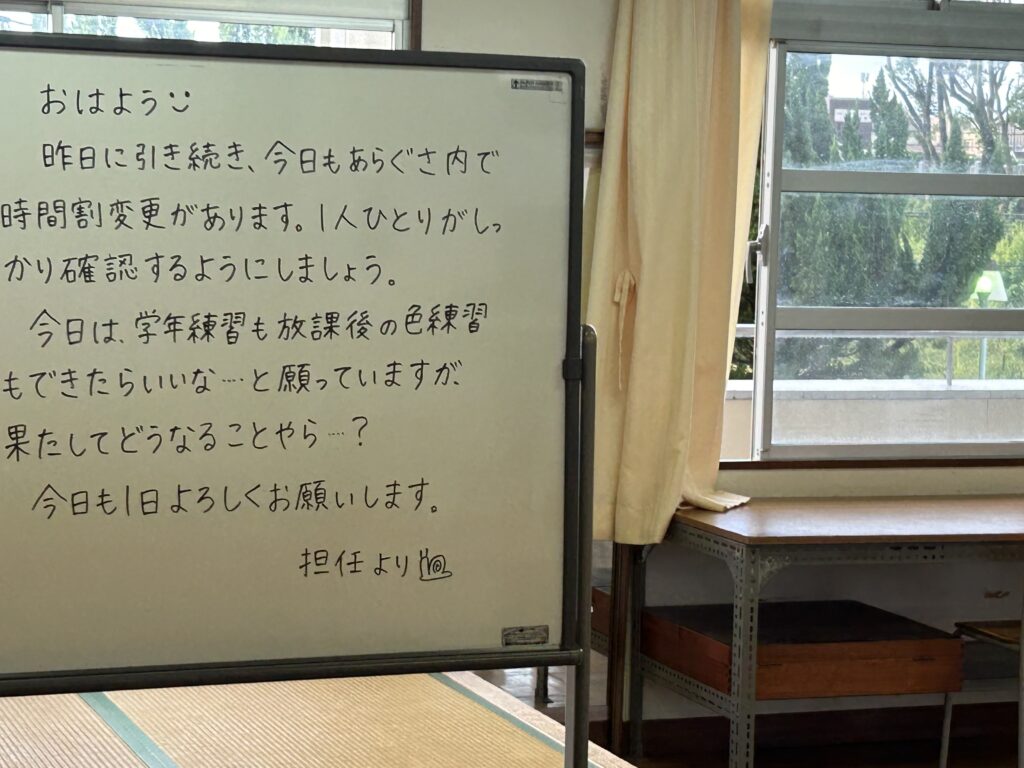 おはよう
昨日に引き続き、今日もあらぐさ内で
時間割変更があります。1人ひとりがしっ
かり確認するようにしましょう。
今日は、学年練習も放課後の色練習
もできたらいいな…と願っていますが、
果たしてどうなることやら…？
今日も1日よろしくお願いします。
担任より